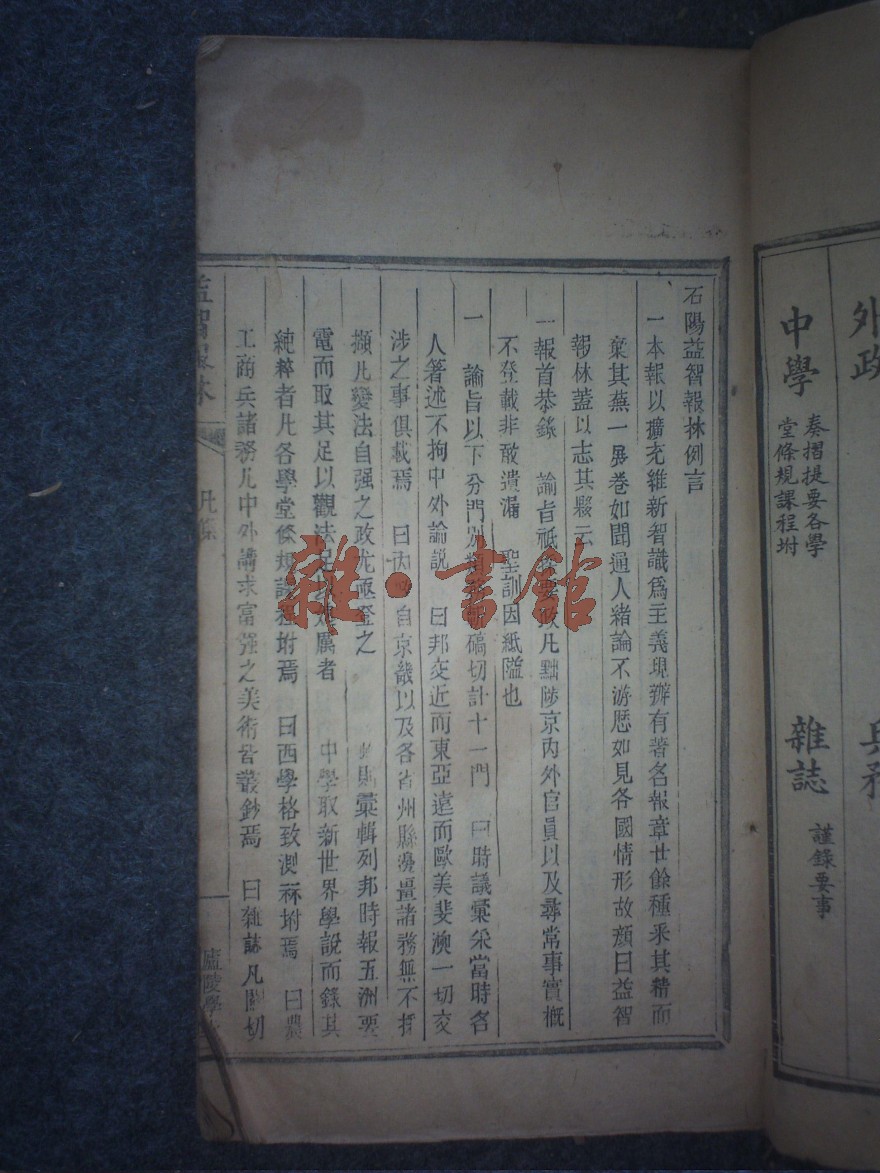 外政
兵務
中學
奏摺提要各學
堂條規課程坿
雜誌
謹錄要事
石陽益智報林例言
一本報以擴充維新智識爲主義現辦有著名報章廿餘種采其精而
棄其蕪一展卷如聞通人緒論不游歷如見各國情形故顏曰益智
報林蓋以志其夥云
一報首恭錄 諭旨祇 要 凡黜陟京內外官員以及尋常事實概
不登載非敢遺漏 聖訓因紙隘也
一 諭旨以下分門別類 碻切計十一門 曰時議彙采當時各
人著述不拘中外論說 曰邦交近而東亞遠而歐美斐澳一切交
涉之事俱載焉 曰內 自京畿以及各省州縣邊疆諸務無不採
擷凡變法自强之政尤亟登之 彙輯列邦時報五洲要
電而取其足以觀法足以 厲者 中學取新世界學說而錄其
純粹者凡各學堂條規課程坿焉 曰西學格致測祘坿焉 曰農
工商兵諸務凡中外講求富强之美術皆叢鈔焉 曰雜誌凡關切
益智報林
凡例
廬陵學
雜·書館